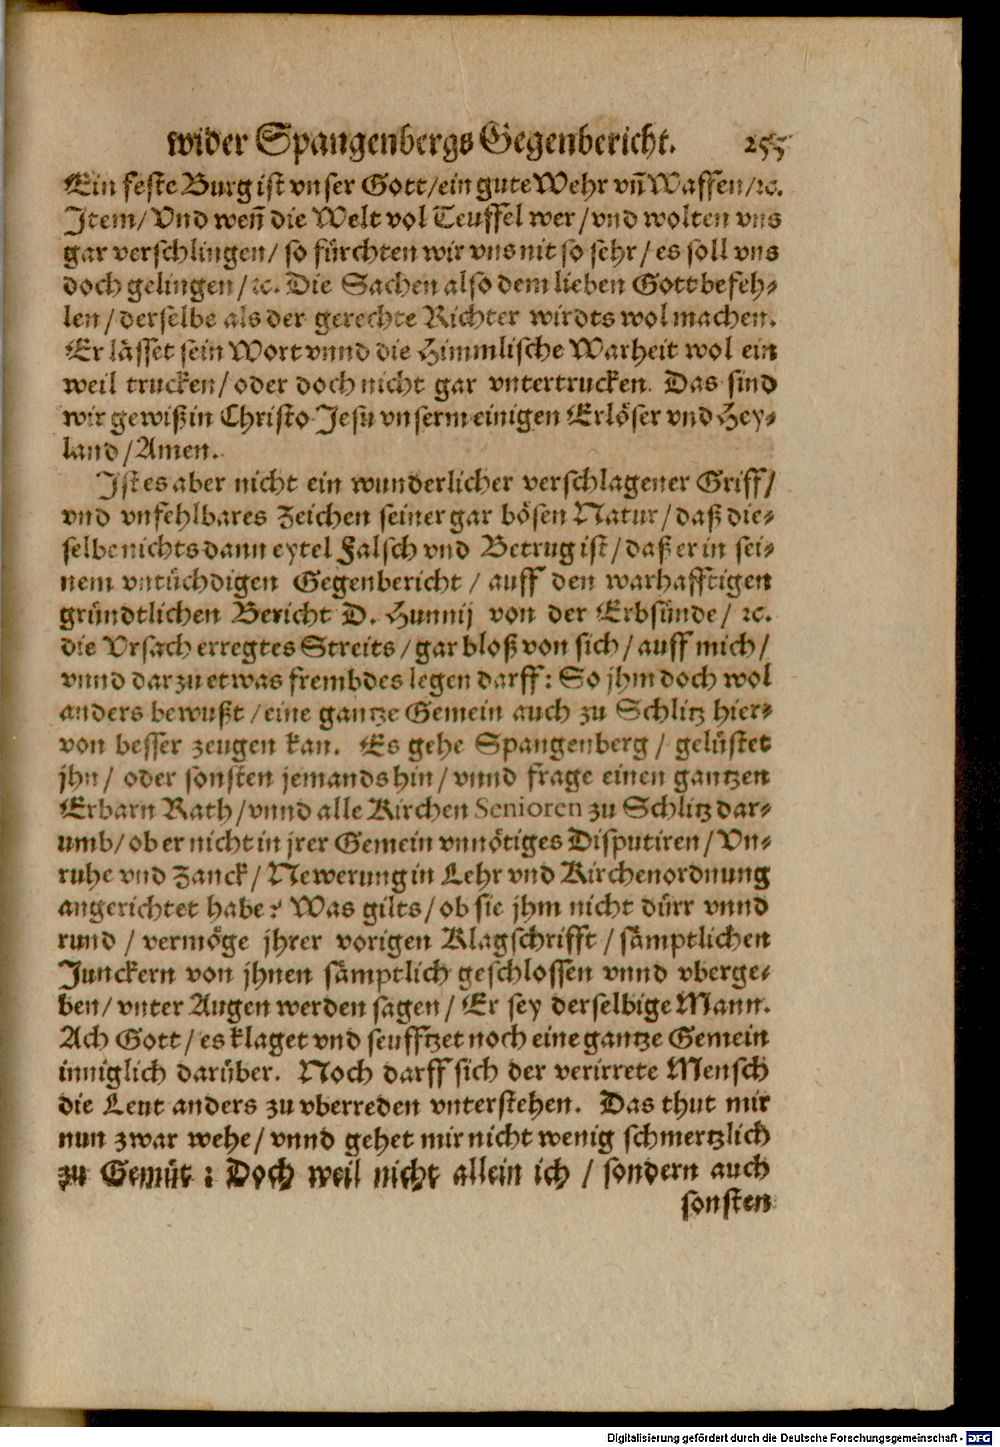 wider Spangenbergs Gegenbericht. 255
Ein feste Burg ist vnser Gott/ein gute Wehr vn̄ Waffen/ꝛc.
Item/ Vnd wen̄ die Welt vol Teuffel wer/vnd wolten vns
gar verschlingen/ so fürchten wir vns nit so sehr/ es soll vns
doch gelingen/ꝛc. Die Sachen also dem lieben Gott befeh-
len/derselbe als der gerechte Richter wirdts wol machen.
Er lässet sein Wort vnnd die Himmlische Warheit wol ein
weil trucken/oder doch nicht gar vntertrucken. Das sind
wir gewiß in Christo Jesu vnserm einigen Erlöser vnd Hey-
land/Amen.
Ist es aber nicht ein wunderlicher verschlagener Griff/
vnd vnfehlbares Zeichen seiner gar bösen Natur/daß die-
selbe nichts dann eytel Falsch vnd Betrug ist/daß er in sei-
nem vntüchdigen Gegenbericht/ auff den warhafftigen
gründtlichen Bericht D. Hunnij von der Erbsünde/ ꝛc.
die Vrsach erregtes Streits/gar bloß von sich/auff mich/
vnnd darzu etwas frembdes legen darff: So jhm doch wol
anders bewußt/eine gantze Gemein auch zu Schlitz hier-
von besser zeugen kan. Es gehe Spangenberg/ gelüstet
jhn/ oder sonsten jemands hin/vnnd frage einen gantzen
Erbarn Rath/vnnd alle Kirchen Senioren zu Schlitz dar-
umb/ob er nicht in jrer Gemein vnnötiges Disputiren/Vn-
ruhe vnd Zanck/Newerung in Lehr vnd Kirchenordnung
angerichtet habe? Was gilts/ob sie jhm nicht dürr vnnd
rund/vermöge jhrer vorigen Klagschrifft/sämptlichen
Junckern von jhnen sämptlich geschlossen vnnd vberge-
ben/vnter Augen werden sagen/ Er sey derselbige Mann.
Ach Gott/es klaget vnd seufftzet noch eine gantze Gemein
inniglich darüber. Noch darff sich der verirrete Mensch
die Leut anders zu vberreden vnterstehen. Das thut mir
nun zwar wehe/vnnd gehet mir nicht wenig schmertzlich
zu Gemüt: Doch weil nicht allein ich/sondern auch
sonsten
Digitalisierung gefördert durch die Deutsche Forschungsgemeinschaft - DFG